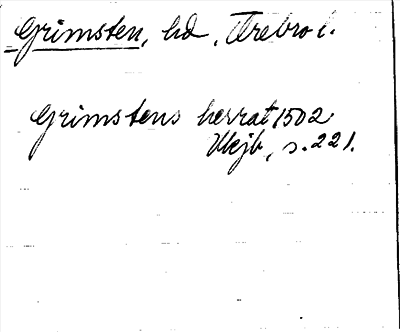 Grimsten, hd, Örebro l.
Grimstens herrat 1502
Vkjb, s. 221.